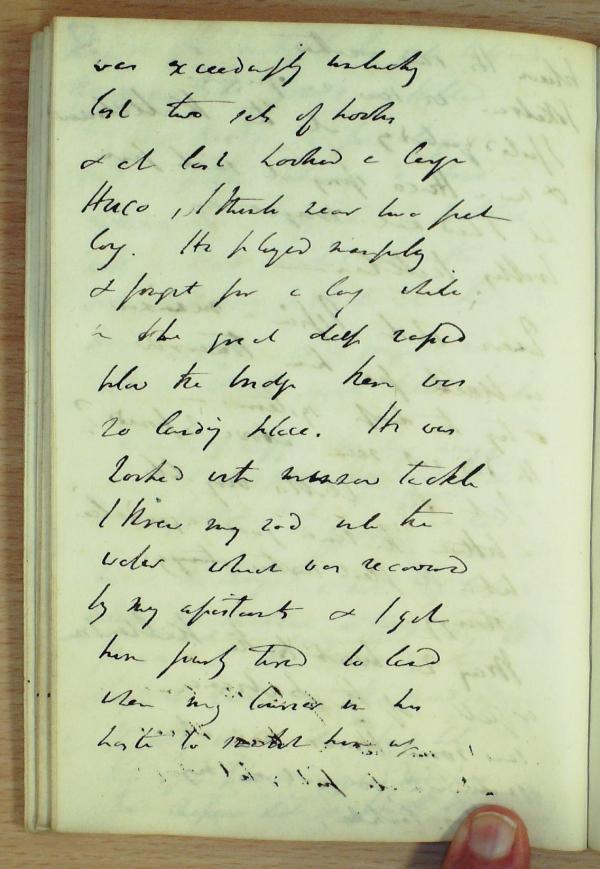 was exceedingly unlucky
lost two sets of hooks
& at last hooked a large
Huco, I think near two feet
long. He played simply
& fought for a long while
in the great deep rapid
below the bridge there was
no landing place. He was
hooked with minnow tackle
I threw my rod into the
water which was recovered
by my assistants & I got
him fairly tired to land
when my Courier in his
haste to snatch him up